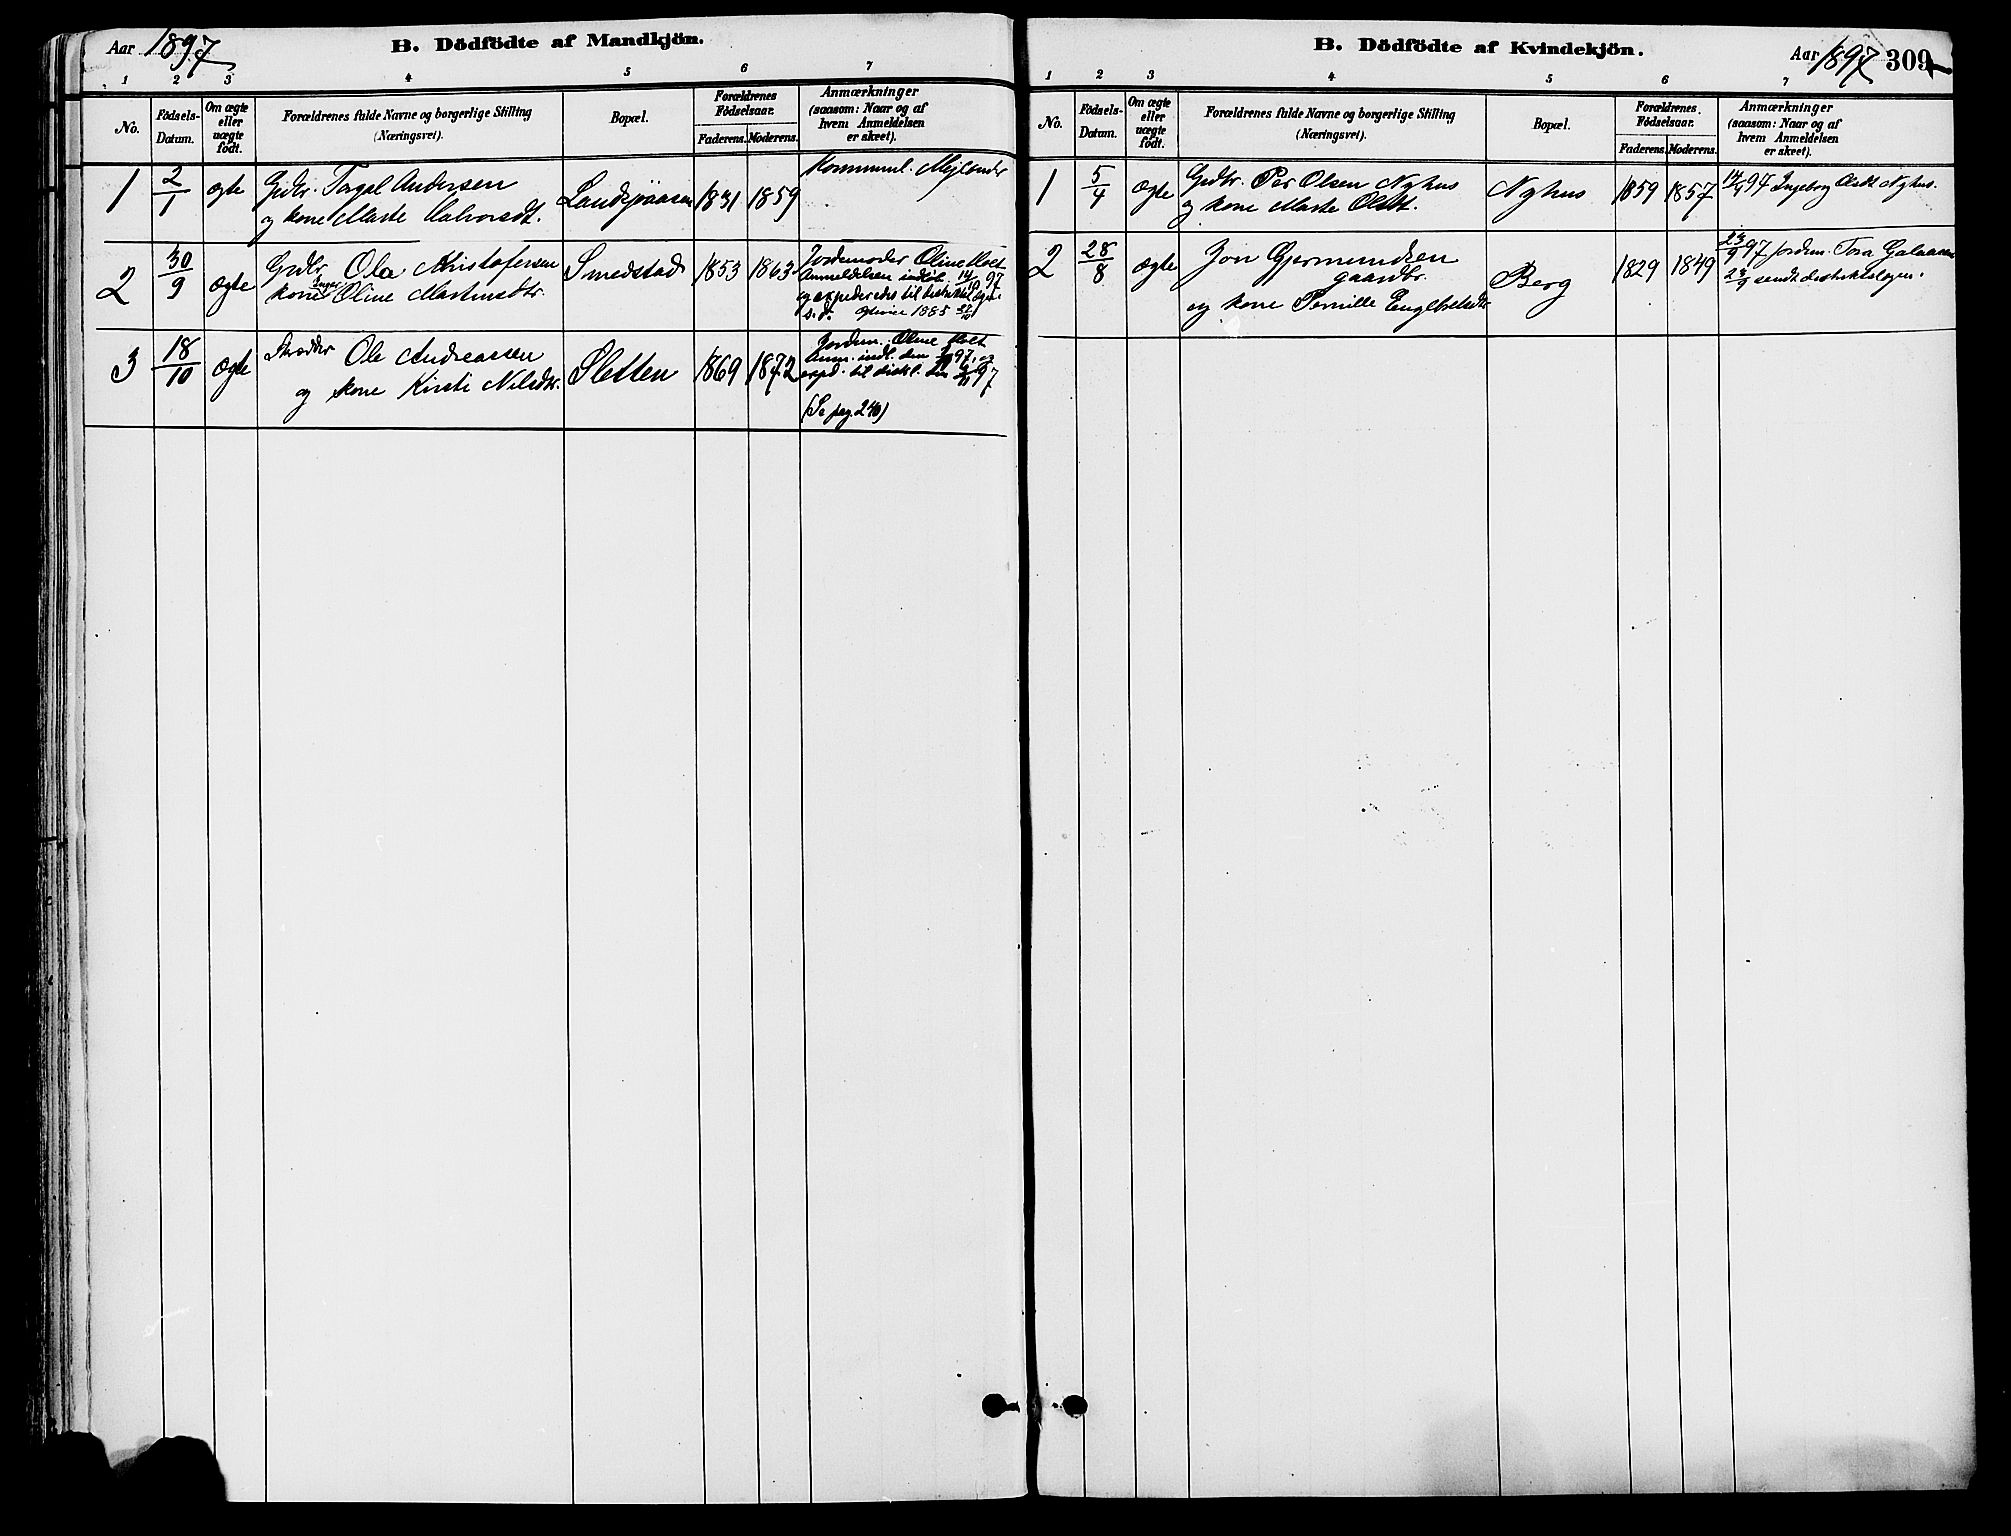 Aar 1897
B. Dödfödte af Mandkjön.
1 2 3 4 5 6 7
No.
Födsels-
Datum.
Om ægte
eller
uægte
födt.
Forældrenes fulde Navne og borgerlige Stilling
(Næringsvei).
Bopæl.
Forældrenes
Födselsaar.
Faderens. Moderens.
Anmærkninger
(saasom: Naar og af
hvem Anmeldelsen
er skeet).
1 2/1 ægte Grdbr. Torgal Andersen
og kone Marte Halvorsdt.
1831 1859
2 30/9 ægte Grdbr. Ola Kristofersen
kone Inger Oline Martinsdtr.
Smedstad 1853 1863
Jordemoder Oline Holt
Anmeldelsen indløb 14/10 97
og expederedes til distriktslægen
s. d.
3 18/10 ægte Skrædder Ole Andreassen
og kone Kirsti Nilsdtr.
Sletten 1869 1872
Jordem. Oline Holt
Anm. indl. den 97, og
exped. til distl. den 97
(Se pag. 240)
B. Dödfödte af Kvindekjön.
Aar 1897 309
1 2 3 4 5 6 7
No.
Födsels-
Datum.
Om ægte
eller
uægte
födt.
Forældrenes fulde Navne og borgerlige Stilling
(Næringsvei).
Bopæl.
Forældrenes
Födselsaar.
Faderens. Moderens.
Anmærkninger
(saasom: Naar og af
hvem Anmeldelsen
er skeet).
1 5/4 ægte Grdbr. Per Olsen Nyhus
og kone Marte Olsdt.
Nyhus 1859 1857
14/4 97 Ingeborg Olsdt Nyhus.
2 28/8 ægte Jon Gjermundsen
gaardbr.
og kone Pernille Engebretsdtr.
Berg 1829 1849
23/9 97 Jordem. Tora Galaasen
23/9 sendt distriktslægen.